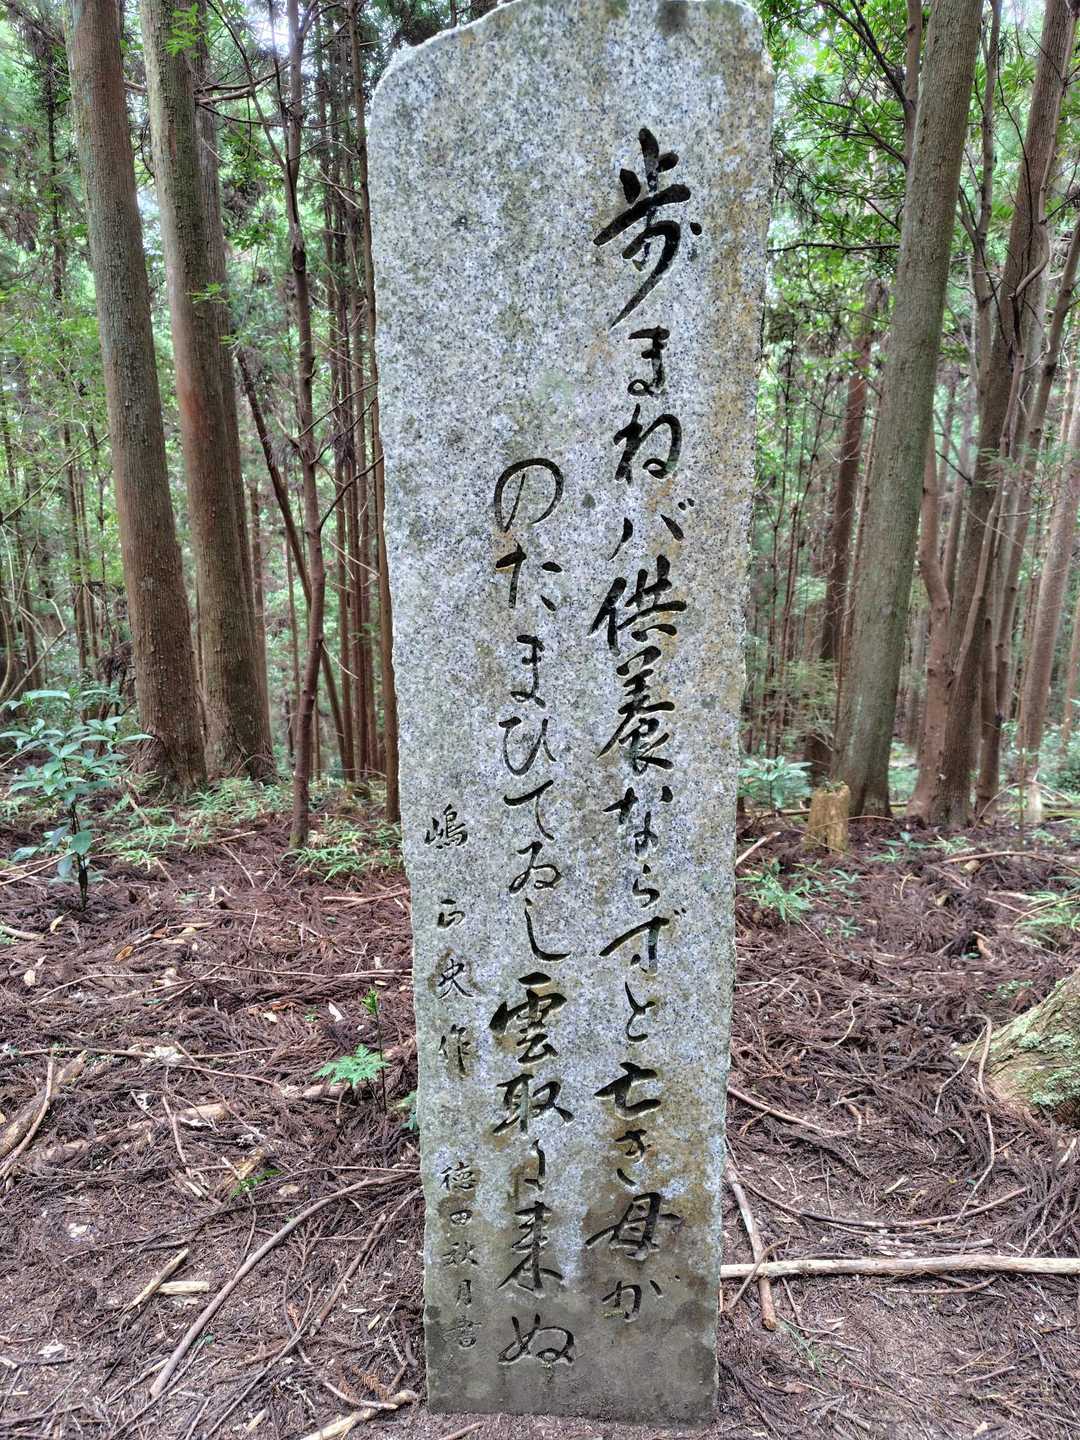 歩まねバ供養ならずと亡き母が
のたまひてゐし雲取に来ぬ
嶋正央作 徳田秋月書